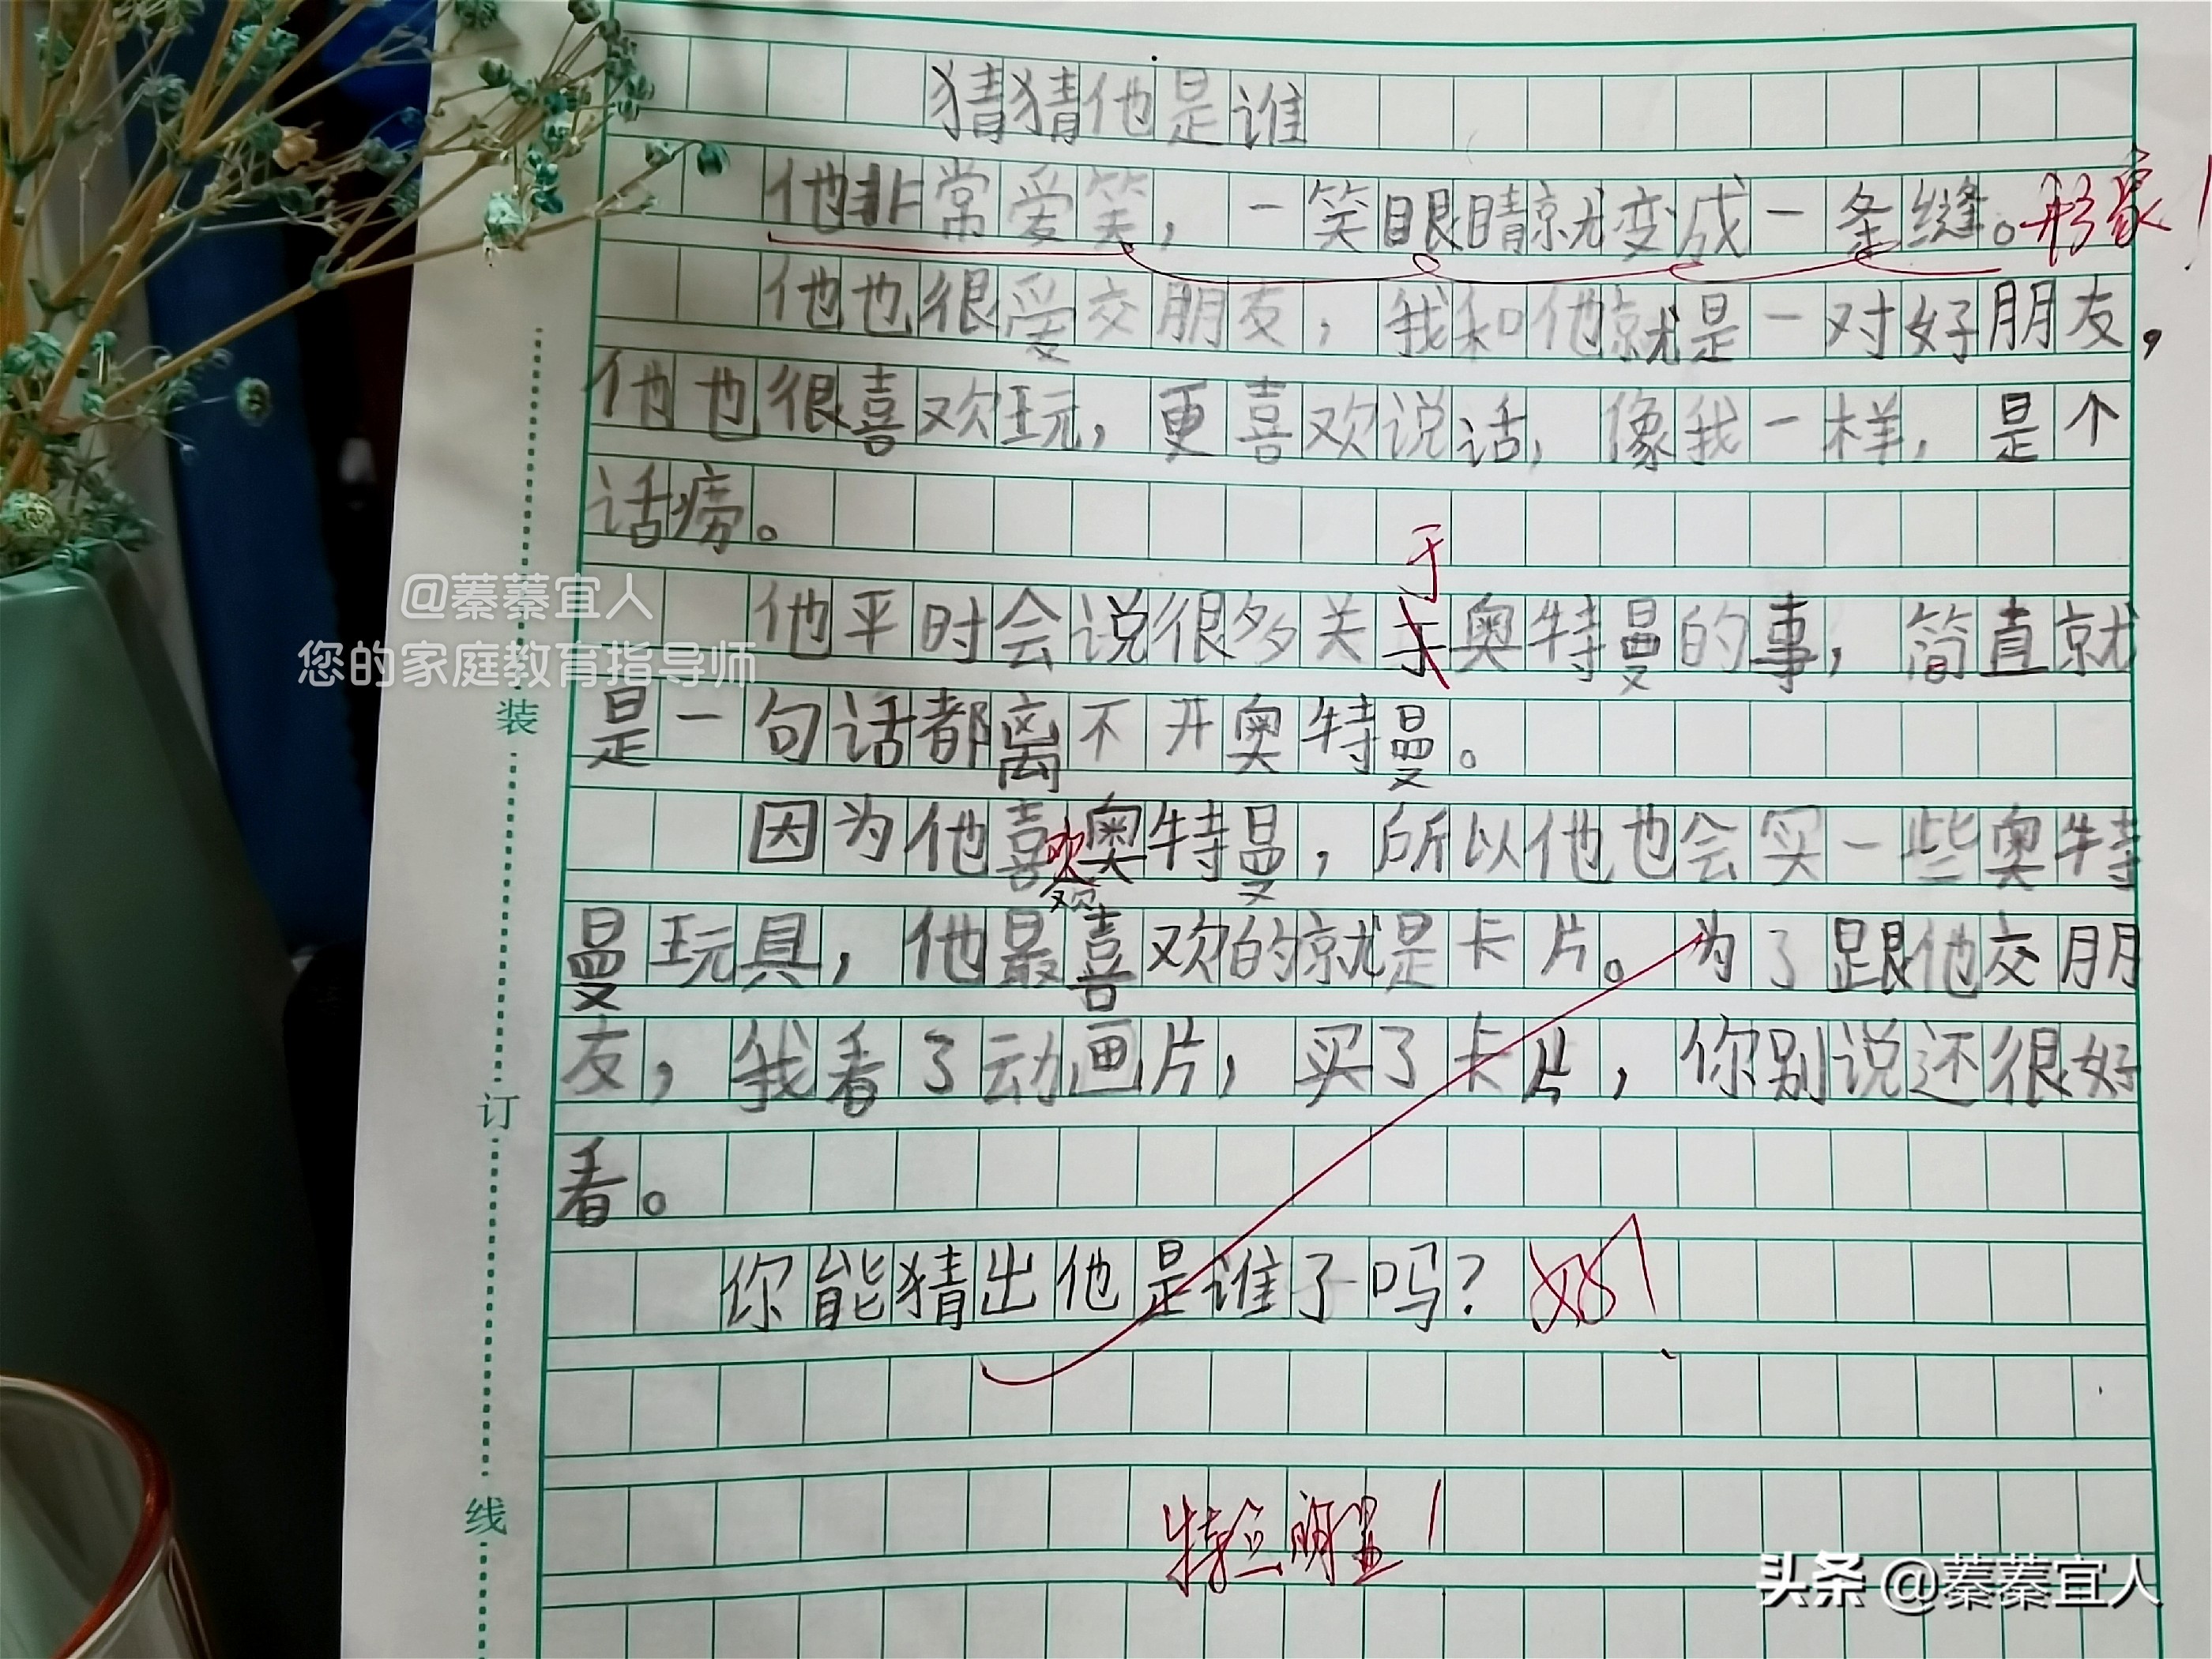 猜猜他是谁
他非常爱笑，一笑眼睛就变成一条缝。形象！
他也很爱交朋友，我和他就是一对好朋友，
他也很喜欢玩，更喜欢说话，像我一样，是个
话痨。
于
他平时会说很多关于奥特曼的事，简直就
是一句话都离不开奥特曼。
因为他喜欢奥特曼，所以他也会买一些奥特
曼玩具，他最喜欢的就是卡片。为了跟他交朋
友，我看了动画片，买了卡片，你别说还很好
看。
你能猜出他是谁了吗？好！
特点明显！
装
订
线
@蓁蓁宜人
您的家庭教育指导师
头条 @蓁蓁宜人